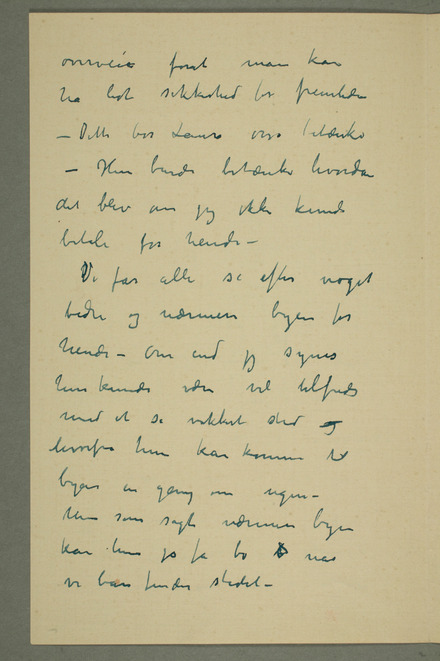 overveie forat man kan
ha lidt sikkerhed for fremtiden
– Dette bør Laura også betænke
– Hun burde betænke hvordan
det blev om jeg ikke kunde
betale for hende –
Vi får alle se efter noget
bedre og nærmere byen for
hende – om end jeg synes
hun kunde være vel tilfreds
med et så vakkert sted og
hvorfra hun kan komme til
byen en gang om ugen –
Men som sagt nærmere byen
kan hun jo få bo når
vi bare finder stedet –